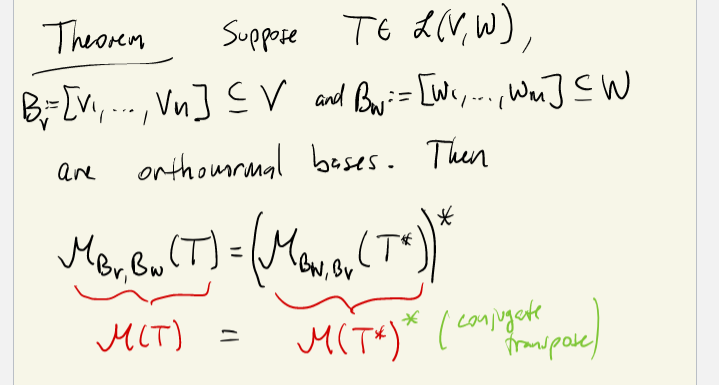 Theorem Suppose T∈ ℒ(V,W),
B_V:=[v₁,...,vₙ] ⊆ V and B_W:=[w₁,...,wₘ] ⊆ W
are orthonormal bases. Then
ℳ_{B_V,B_W}(T) = (ℳ_{B_W,B_V}(T*))*
ℳ(T) = ℳ(T*)* (conjugate
transpose)